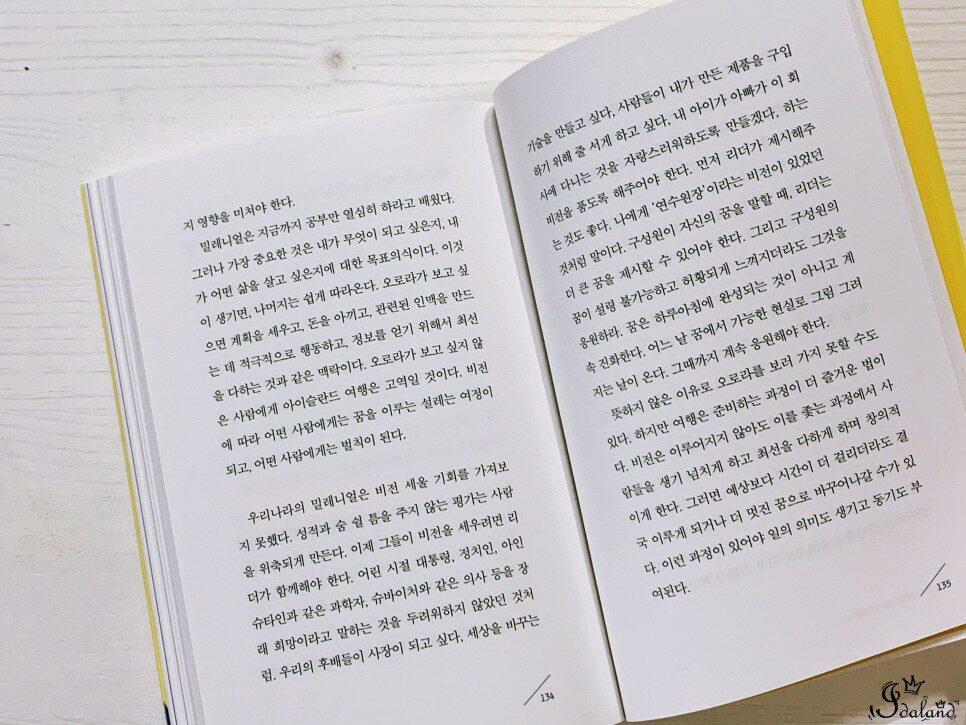 지 영향을 미쳐야 한다.
밀레니얼은 지금까지 공부만 열심히 하라고 배웠다.
그러나 가장 중요한 것은 내가 무엇이 되고 싶은지, 내
가 어떤 삶을 살고 싶은지에 대한 목표의식이다. 이것
이 생기면, 나머지는 쉽게 따라온다. 오로라가 보고 싶
으면 계획을 세우고, 돈을 아끼고, 관련된 인맥을 만드
는 데 적극적으로 행동하고, 정보를 얻기 위해서 최선
을 다하는 것과 같은 맥락이다. 오로라가 보고 싶지 않
은 사람에게 아이슬란드 여행은 고역일 것이다. 비전
에 따라 어떤 사람에게는 꿈을 이루는 설레는 여정이
되고, 어떤 사람에게는 벌칙이 된다.
우리나라의 밀레니얼은 비전 세울 기회를 가져보
지 못했다. 성적과 숨 쉴 틈을 주지 않는 평가는 사람
을 위축되게 만든다. 이제 그들이 비전을 세우려면 리
더가 함께해야 한다. 어린 시절 대통령, 정치인, 아인
슈타인과 같은 과학자, 슈바이처와 같은 의사 등을 장
래 희망이라고 말하는 것을 두려워하지 않았던 것처
럼, 우리의 후배들이 사장이 되고 싶다, 세상을 바꾸는
134
기술을 만들고 싶다, 사람들이 내가 만든 제품을 구입
하기 위해 줄 서게 하고 싶다, 내 아이가 아빠가 이 회
사에 다니는 것을 자랑스러워하도록 만들겠다, 하는
비전을 품도록 해주어야 한다. 먼저 리더가 제시해주
는 것도 좋다. 나에게 ‘연수원장’이라는 비전이 있었던
것처럼 말이다. 구성원이 자신의 꿈을 말할 때, 리더는
더 큰 꿈을 제시할 수 있어야 한다. 그리고 구성원의
꿈이 설령 불가능하고 허황되게 느껴지더라도 그것을
응원하라. 꿈은 하루아침에 완성되는 것이 아니고 계
속 진화한다. 어느 날 꿈에서 가능한 현실로 그림 그려
지는 날이 온다. 그때까지 계속 응원해야 한다.
뜻하지 않은 이유로 오로라를 보러 가지 못할 수도
있다. 하지만 여행은 준비하는 과정이 더 즐거운 법이
다. 비전은 이루어지지 않아도 이를 좇는 과정에서 사
람들을 생기 넘치게 하고 최선을 다하게 하며 창의적
이게 한다. 그러면 예상보다 시간이 더 걸리더라도 결
국 이루게 되거나 더 멋진 꿈으로 바꾸어나갈 수가 있
다. 이런 과정이 있어야 일의 의미도 생기고 동기도 부
여된다.
135
Jdaland